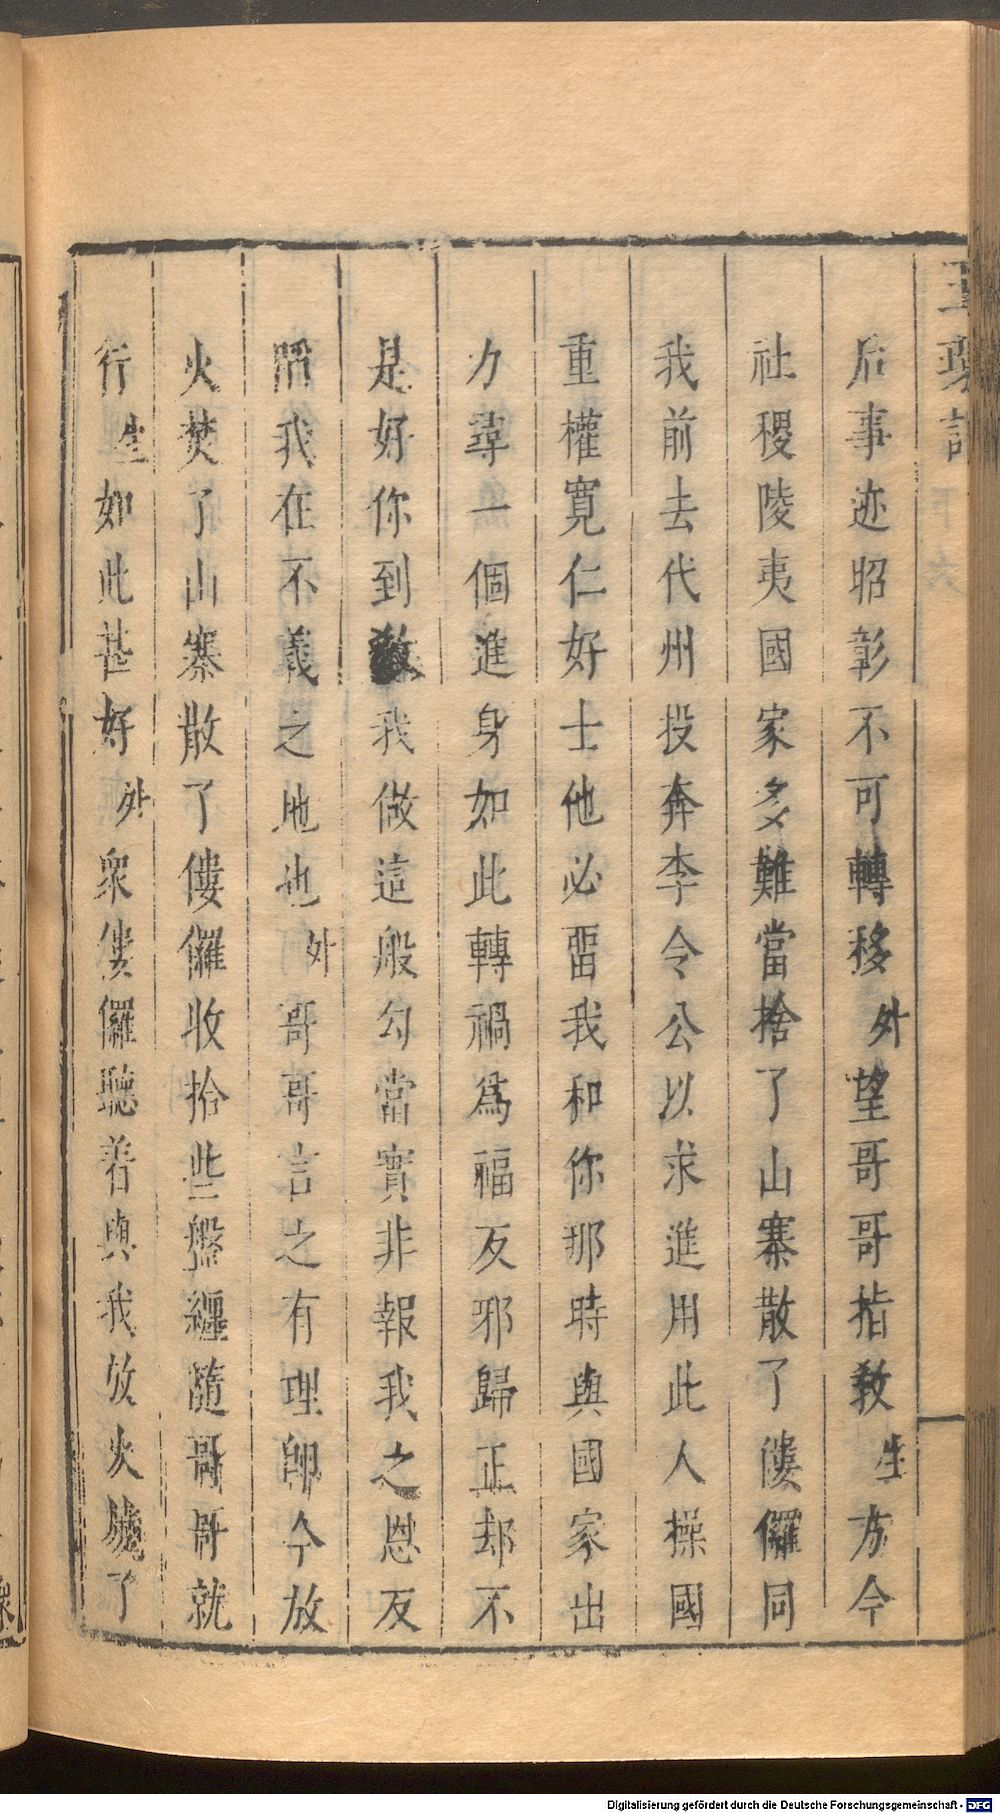 玉
后事迹昭彰不可轉移外望哥哥指教生方今
社稷陵夷國家多難當捨了山寨散了僂儸同
我前去代州投奔李令公以求進用此人操國
重權寬仁好士他必畱我和你那時與國家出
力尋一個進身如此轉禍為福反邪歸正却不
是好你到教我做這般勾當實非報我之恩反
陷我在不義之地也外哥哥言之有理卽今放
火焚了山寨散了僂儸收拾些盤纏隨哥哥就
行生如此甚好外衆僂儸聽着與我放火燒了
Digitalisierung gefördert durch die Deutsche Forschungsgemeinschaft - DFG